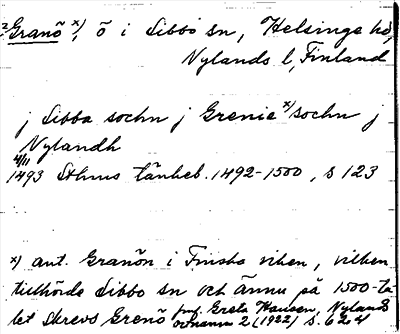 Granö x), ö i Sibbo sn, Helsinge hd,
Nylands l, Finland
j Sibba sochn j Grenie x) sochn j
Nylandh
4/11
1493 Sthms tänkeb. 1492-1500, s 123
x) ant. Granön i Finska viken, vilken
tillhörde Sibbo sn och ännu på 1500-ta-
let skrevs Grenö jmf. Greta Hausen, Nylands
ortnamn 2 (1922) s. 624